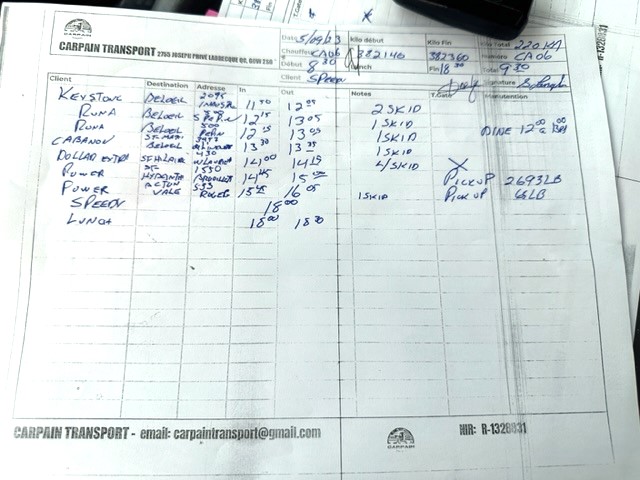 CARPAIN TRANSPORT 2755 JOSEPH PRIVÉ LABRECQUE QC, G0W 2S0
Date 5/09/23 Kilo début 382140 Kilo Fin 382360 Kilo Total 220 KM
Chauffeur CA06 Lunch Numéro CA06
Début 8 30 Fin 18 30 Total 9.30
Client SPEEDY Signature
Client Destination Adresse In Out Notes T.Gate Manutention
KEYSTONE BELOEIL 2095 11 50 12 05 2 SKID
RONA BELOEIL 12 15 13 05 1 SKID
RONA BELOEIL 500 12 15 13 05 1 SKID DINE 12 00 a 13 00
CABANON BELOEIL 13 30 13 35 1 SKID
DOLLAR EXTRA ST HILAIRE 430 14 00 14 15 4/SKID X
POWER ST HYACINTHE 1550 14 45 15 00 PICKUP 2693LB
POWER ACTON VALE 533 ROGER 15 45 16 05 1 SKID PICKUP 63LB
SPEEDY 18 00
LUNCH 18 00 18 30
CARPAIN TRANSPORT - email: carpaintransport@gmail.com CARPAIN NIR: R-1328031
R-1328031